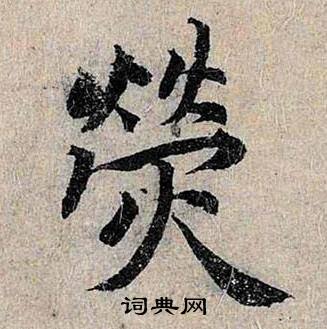 熒
词典网